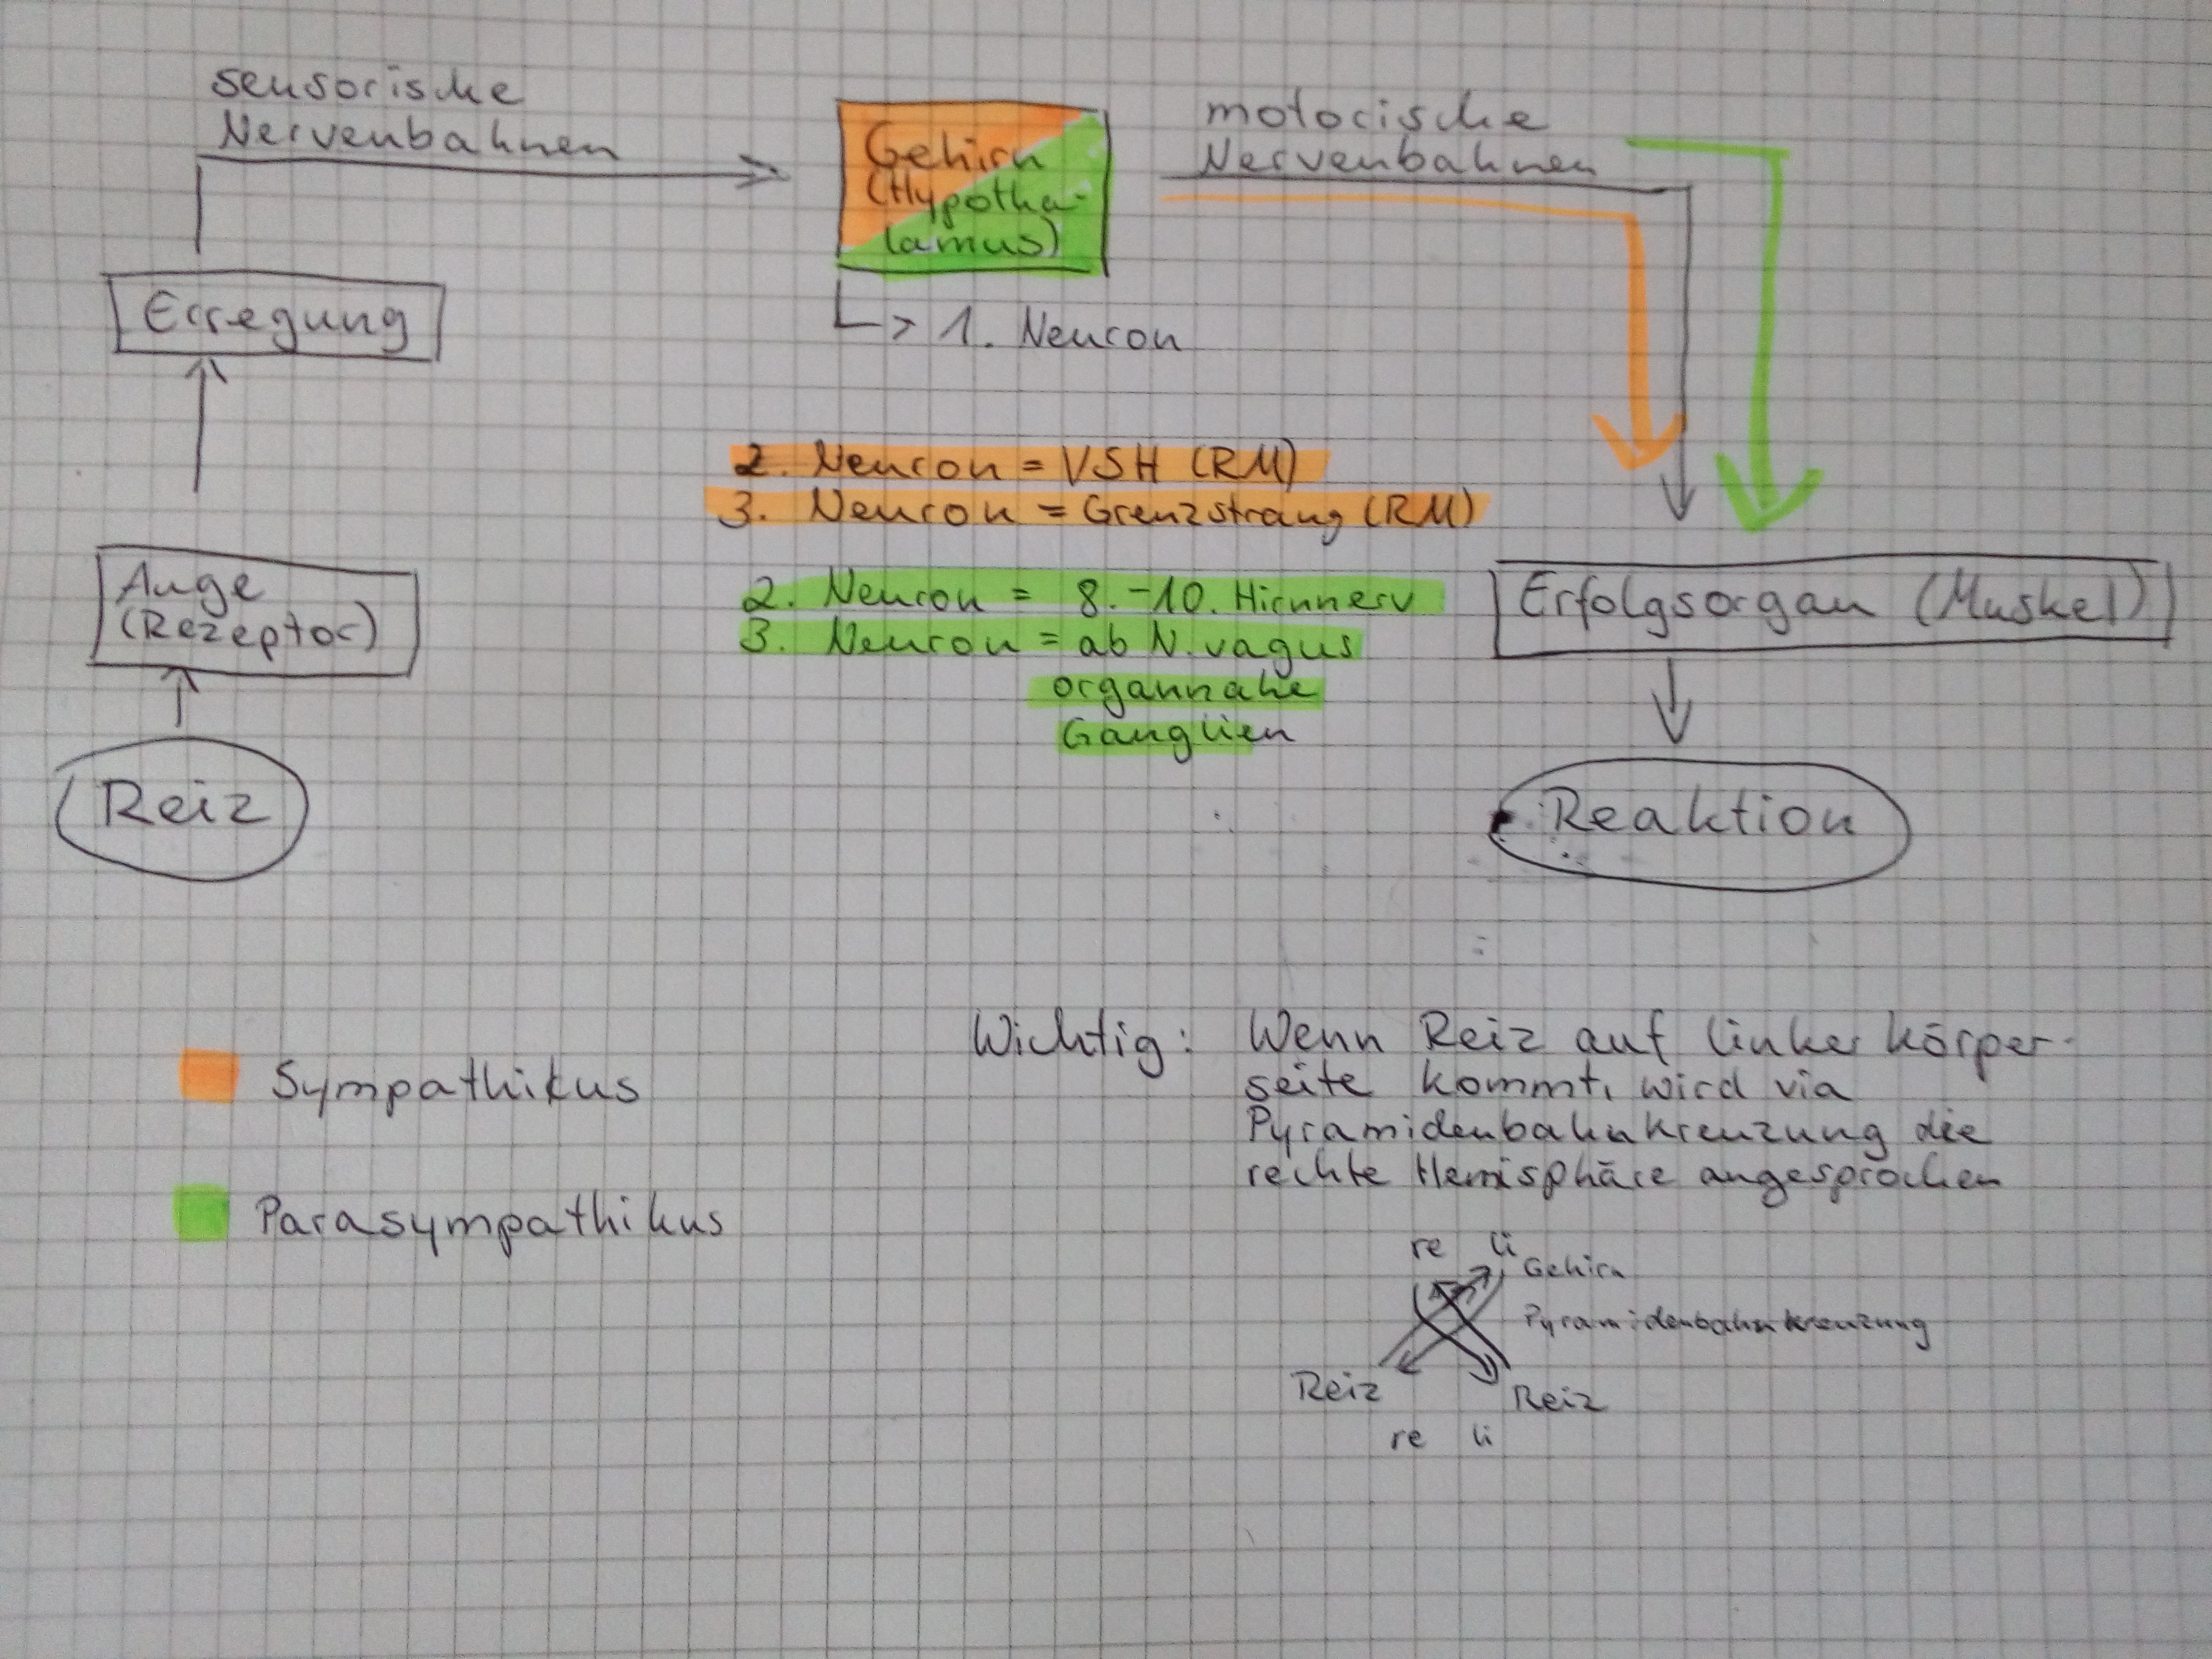 sensorische
Nervenbahnen
Gehirn
(Hypotha-
lamus)
motorische
Nervenbahnen
Erregung
1. Neuron
2. Neuron = VSH (RM)
3. Neuron = Grenzstrang (RM)
Auge
(Rezeptor)
2. Neuron = 8.-10. Hirnnerv
3. Neuron = ab N. vagus
organnahe
Ganglien
Erfolgsorgan (Muskel)
Reiz
Reaktion
Sympathikus
Parasympathikus
Wichtig: Wenn Reiz auf linker Körper-
seite kommt, wird via
Pyramidenbahnkreuzung die
rechte Hemisphäre angesprochen
re li
Gehirn
Pyramidenbahnkreuzung
Reiz Reiz
re li